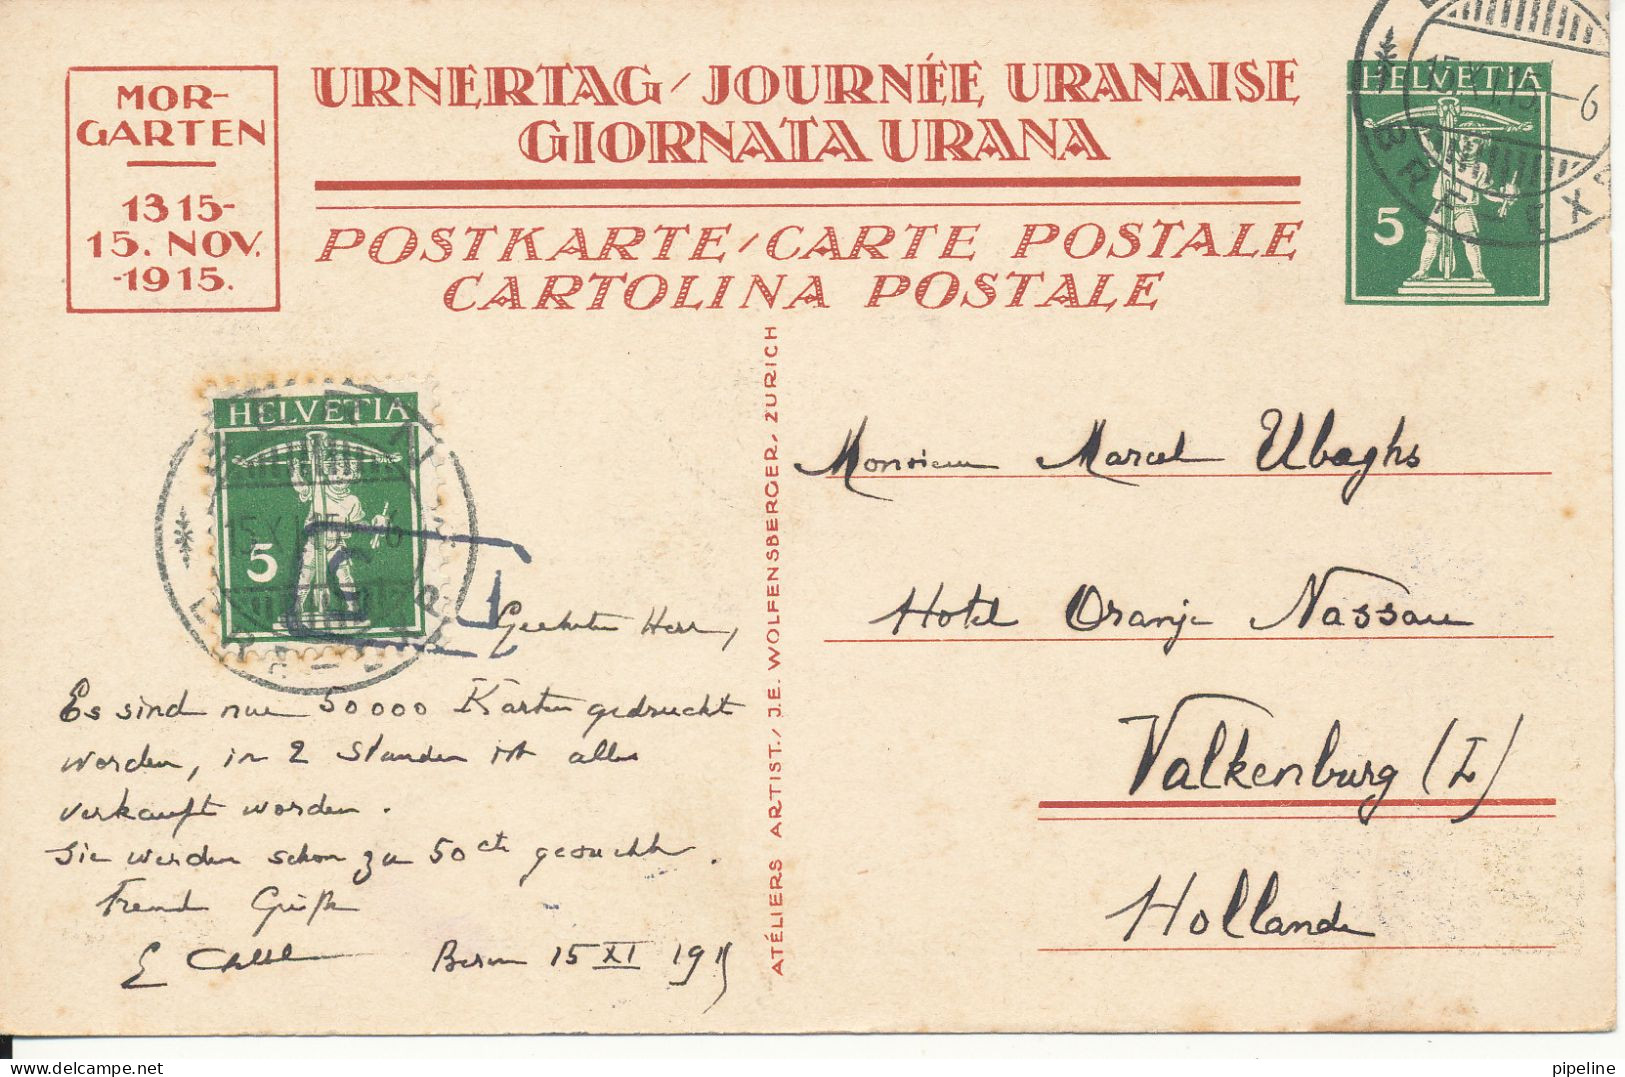 MOR-
GARTEN
1315-
15. NOV.
-1915.
URNERTAG / JOURNÉE URANAISE
GIORNATA URANA
POSTKARTE / CARTE POSTALE
CARTOLINA POSTALE
HELVETIA
5
15.XI.15.—6
HELVETIA
5
15.XI.15.—6
5
ATÉLIERS ARTIST. / J.E. WOLFENSBERGER, ZURICH
Monsieur Marcel Ubaghs
Hotel Oranje Nassau
Valkenburg (L)
Hollande
Geehrter Herr,
Es sind nur 50000 Karten gedruckt
worden, in 2 Stunden ist alles
verkauft worden.
Sie werden schon zu 50 ct gesucht.
Freund Grüße
Bern 15 XI 1915
pipeline